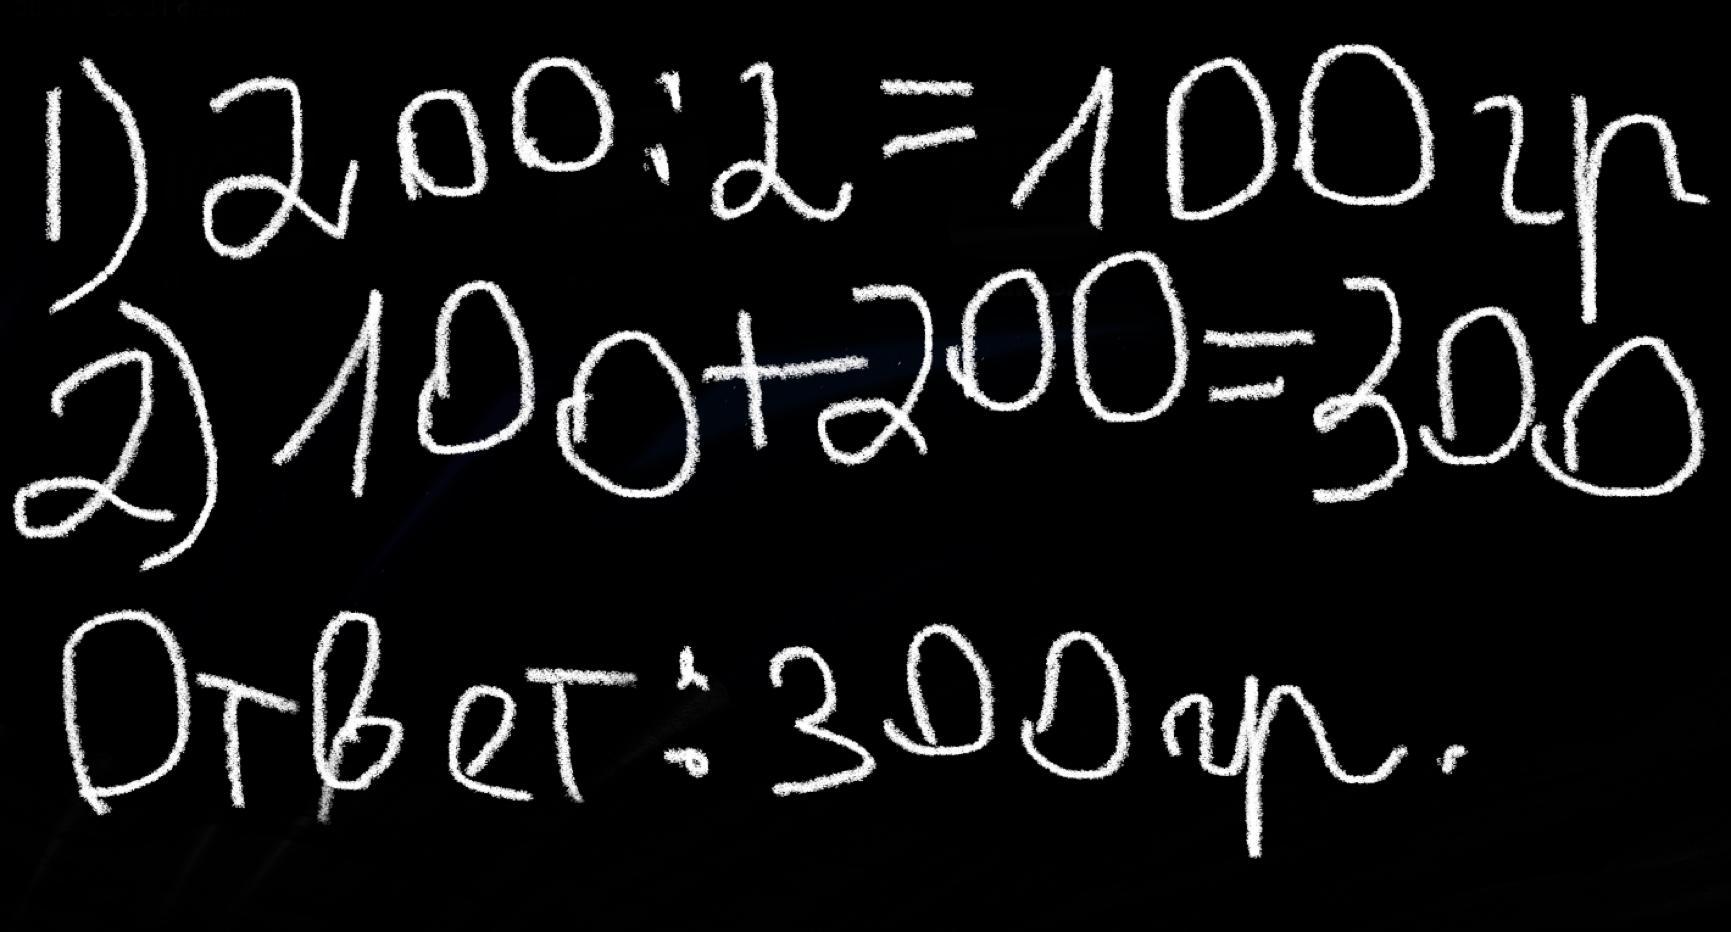 1) 200:2=100гр
2) 100+200=300
Ответ: 300гр.